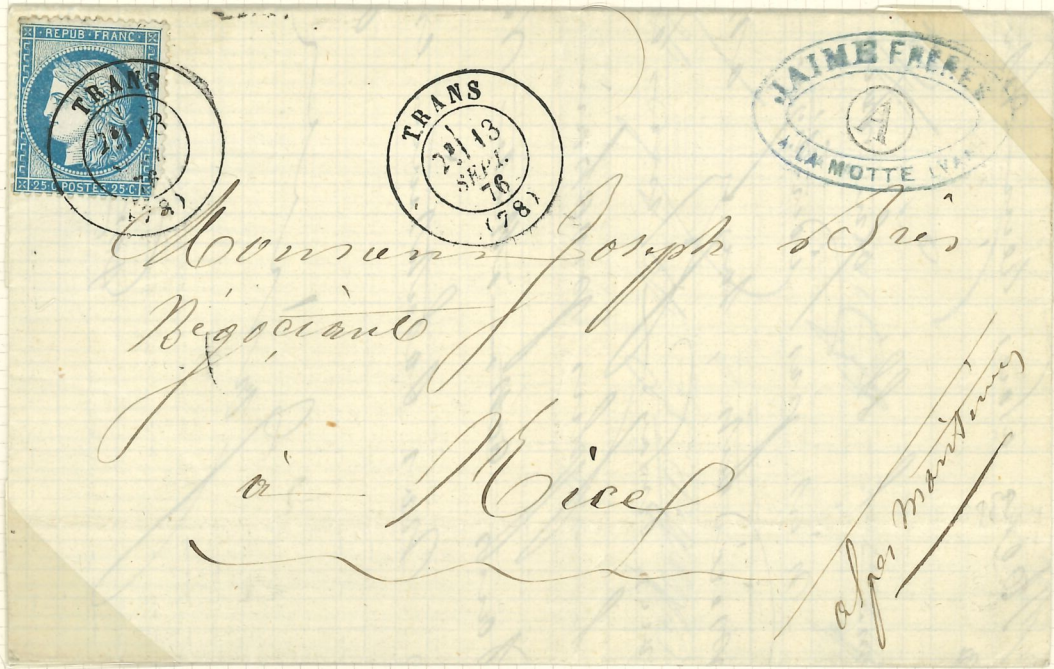 REPUB·FRANC·
25·C·POSTES·25·C·
TRANS
13
(78)
TRANS
2E/ 13
SEPT.
76
(78)
JAIME FRERES
A
A LA MOTTE (VAR
Monsieur Joseph
Négociant
à Nice
alpes maritimes